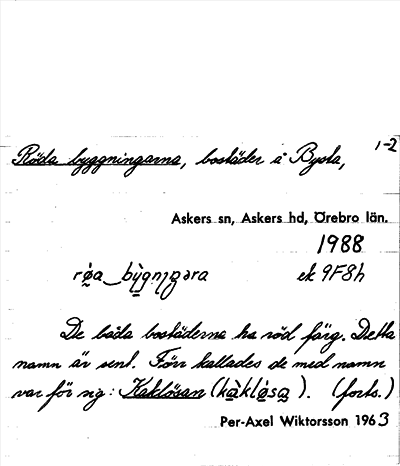 1-2
Röda byggningarna, bostäder å Bysta,
Askers sn, Askers hd, Örebro län.
1988
ek 9F8h
De båda bostäderna ha röd färg. Detta
namn är sent. Förr kallades de med namn
var för sig: Kaklösan (kàkløsa). (forts.)
Per-Axel Wiktorsson 1963